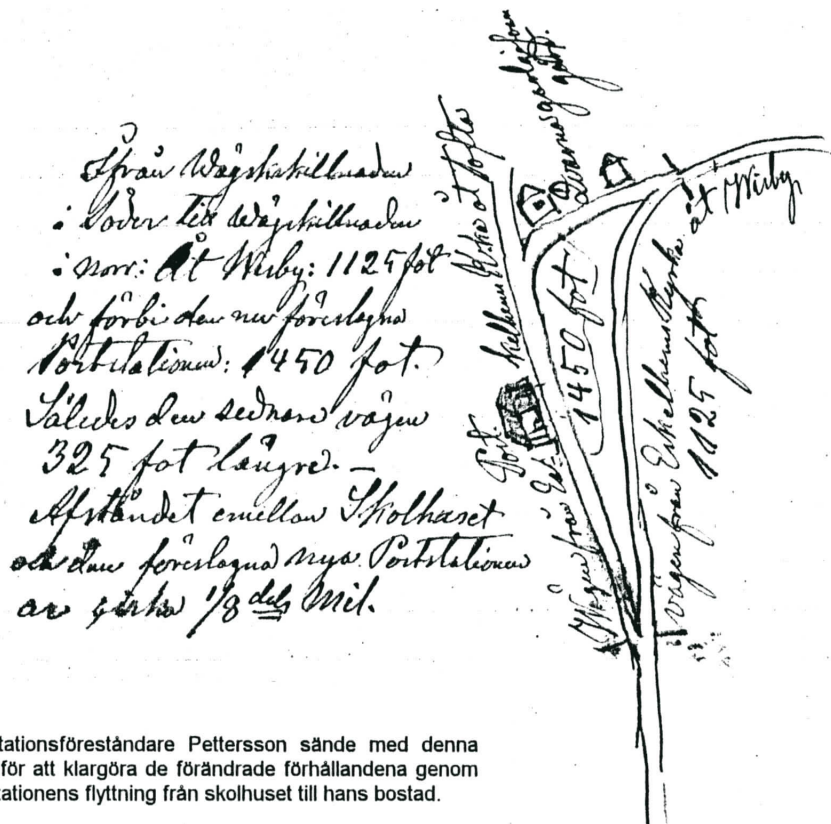 Ifrån Wägskskillnaden
i Söder till Wägskillnaden
i norr: Åt Wisby: 1125 fot
och förbi den nu föreslagna
Poststationen: 1450 fot.
Således den sednare vägen
325 fot längre. –
Afståndet emellan Skolhuset
och den föreslagna nya Poststationen
är cirka 1/8 dels Mil.
åt Wisby
1450 fot
Post
Wägen från Eskelhems Kyrka åt Tofta
vägen från Eskelhems Kyrka
1125 fot
tationsföreståndare Pettersson sände med denna
för att klargöra de förändrade förhållandena genom
tationens flyttning från skolhuset till hans bostad.